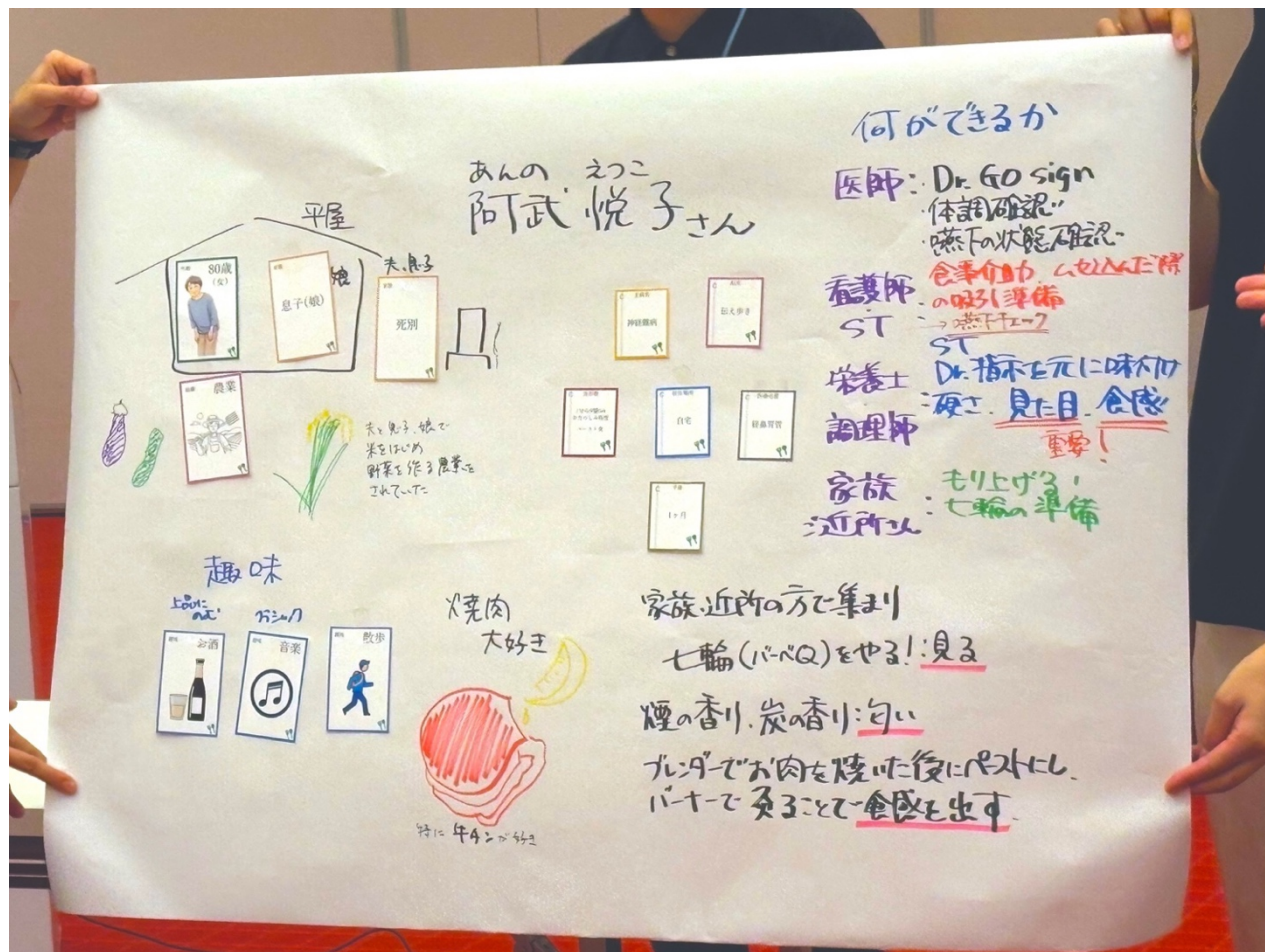 あんの えつこ
阿武 悦子さん
平屋
80歳
(女)
息子(娘)
娘
夫、息子
死別
農業
夫と息子、娘で
米をはじめ
野菜を作る農業を
されていた
趣味
上品に
のむ
お酒
クラシック
音楽
散歩
焼肉
大好き
特に牛タンが好き
神経難病
伝え歩き
自宅
経鼻胃管
1ヶ月
何ができるか
医師:Dr. GO sign
・体調確認
・嚥下の状態確認
看護師:食事介助、ムセ込んだ際
の吸引準備
ST:→嚥下チェック
ST
栄養士 Dr.指示を元に味付け
調理師:硬さ、見た目、食感
重要!
家族
ご近所さん:もり上げる!
七輪の準備
家族、近所の方で集まり
七輪(バーベQ)をやる!:見る
煙の香り、炭の香り:匂い
ブレンダーでお肉を焼いた後にペーストにし、
バーナーで炙ることで食感を出す。